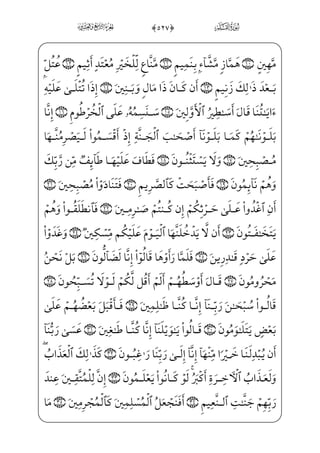 سُورَةُ الْقَلَمِ ﴿٥٢٧﴾ الجُزْءُ التَّاسِعُ وَالْعِشْرُونَ
مَّهِينٍ ١٠ هَمَّازٍ مَّشَّآءٍۭ بِنَمِيمٍ ١١ مَّنَّاعٍ لِّلْخَيْرِ مُعْتَدٍ أَثِيمٍ ١٢ عُتُلٍّۭ
بَعْدَ ذَٰلِكَ زَنِيمٍ ١٣ أَن كَانَ ذَا مَالٍ وَبَنِينَ ١٤ إِذَا تُتْلَىٰ عَلَيْهِ
ءَايَٰتُنَا قَالَ أَسَٰطِيرُ ٱلْأَوَّلِينَ ١٥ سَنَسِمُهُۥ عَلَى ٱلْخُرْطُومِ ١٦ إِنَّا
بَلَوْنَٰهُمْ كَمَا بَلَوْنَآ أَصْحَٰبَ ٱلْجَنَّةِ إِذْ أَقْسَمُوا۟ لَيَصْرِمُنَّهَا
مُصْبِحِينَ ١٧ وَلَا يَسْتَثْنُونَ ١٨ فَطَافَ عَلَيْهَا طَآئِفٌ مِّن رَّبِّكَ
وَهُمْ نَآئِمُونَ ١٩ فَأَصْبَحَتْ كَٱلصَّرِيمِ ٢٠ فَتَنَادَوْا۟ مُصْبِحِينَ ٢١
أَنِ ٱغْدُوا۟ عَلَىٰ حَرْثِكُمْ إِن كُنتُمْ صَٰرِمِينَ ٢٢ فَٱنطَلَقُوا۟ وَهُمْ
يَتَخَٰفَتُونَ ٢٣ أَن لَّا يَدْخُلَنَّهَا ٱلْيَوْمَ عَلَيْكُم مِّسْكِينٌ ٢٤ وَغَدَوْا۟
عَلَىٰ حَرْدٍ قَٰدِرِينَ ٢٥ فَلَمَّا رَأَوْهَا قَالُوٓا۟ إِنَّا لَضَآلُّونَ ٢٦ بَلْ نَحْنُ
مَحْرُومُونَ ٢٧ قَالَ أَوْسَطُهُمْ أَلَمْ أَقُل لَّكُمْ لَوْلَا تُسَبِّحُونَ ٢٨
قَالُوا۟ سُبْحَٰنَ رَبِّنَآ إِنَّا كُنَّا ظَٰلِمِينَ ٢٩ فَأَقْبَلَ بَعْضُهُمْ عَلَىٰ
بَعْضٍ يَتَلَٰوَمُونَ ٣٠ قَالُوا۟ يَٰوَيْلَنَآ إِنَّا كُنَّا طَٰغِينَ ٣١ عَسَىٰ رَبُّنَآ
أَن يُبْدِلَنَا خَيْرًا مِّنْهَآ إِنَّآ إِلَىٰ رَبِّنَا رَٰغِبُونَ ٣٢ كَذَٰلِكَ ٱلْعَذَابُ ۖ
وَلَعَذَابُ ٱلْءَاخِرَةِ أَكْبَرُ ۚ لَوْ كَانُوا۟ يَعْلَمُونَ ٣٣ إِنَّ لِلْمُتَّقِينَ عِندَ
رَبِّهِمْ جَنَّٰتِ ٱلنَّعِيمِ ٣٤ أَفَنَجْعَلُ ٱلْمُسْلِمِينَ كَٱلْمُجْرِمِينَ ٣٥ مَا